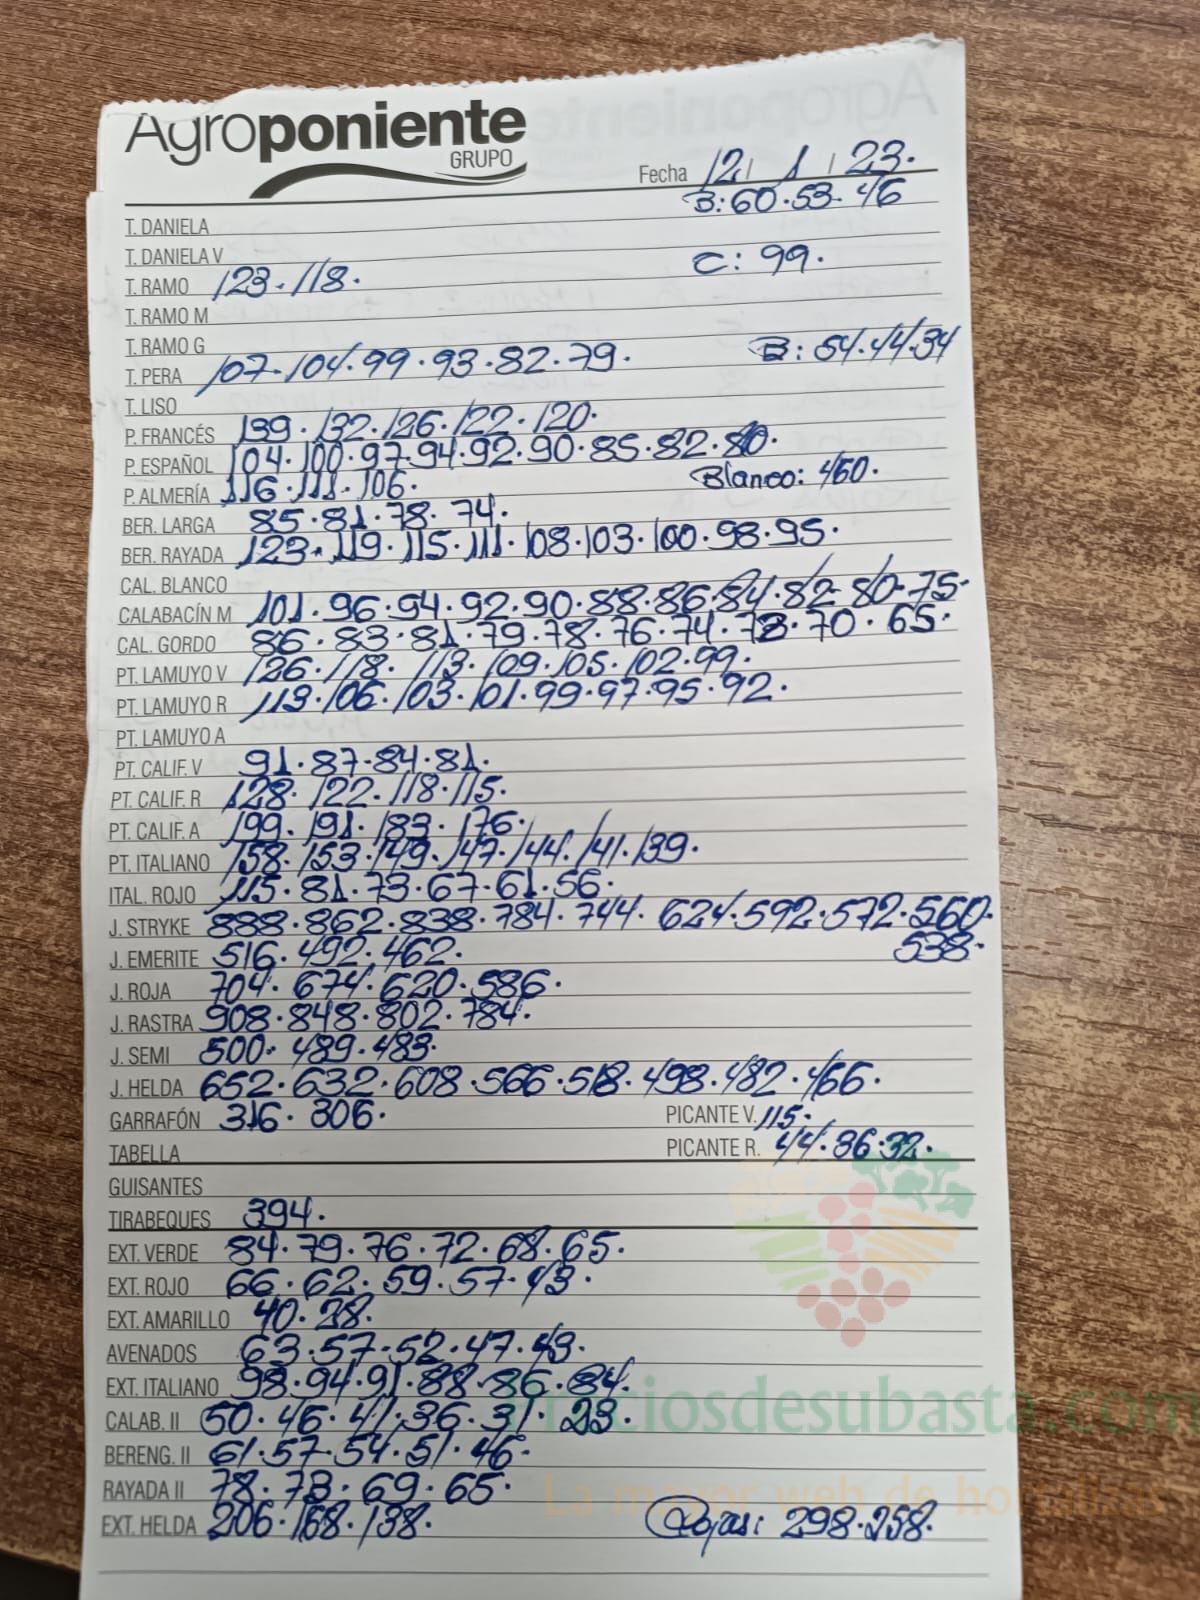 Agroponiente
GRUPO
Fecha 12/ 1 / 23.
B: 60. 53. 46
T. DANIELA
T. DANIELA V
C: 99.
T. RAMO 123. 118.
T. RAMO M
T. RAMO G
B: 54. 44. 34
T. PERA 107. 104. 99. 93. 82. 79.
T. LISO
P. FRANCÉS 139. 132. 126. 122. 120.
P. ESPAÑOL 104. 100. 97. 94. 92. 90. 85. 82. 80.
P. ALMERÍA 116. 111. 106. Blanco: 460.
BER. LARGA 85. 81. 78. 74.
BER. RAYADA 123. 119. 115. 111. 108. 103. 100. 98. 95.
CAL. BLANCO
CALABACÍN M 101. 96. 94. 92. 90. 88. 86. 84. 82. 80. 75.
CAL. GORDO 86. 83. 81. 79. 78. 76. 74. 73. 70. 65.
PT. LAMUYO V 126. 118. 113. 109. 105. 102. 99.
PT. LAMUYO R 113. 106. 103. 101. 99. 97. 95. 92.
PT. LAMUYO A
PT. CALIF. V 91. 87. 84. 81.
PT. CALIF. R 128. 122. 118. 115.
PT. CALIF. A 199. 191. 183. 176.
PT. ITALIANO 158. 153. 149. 147. 144. 141. 139.
ITAL. ROJO 115. 81. 73. 67. 61. 56.
J. STRYKE 888. 862. 838. 784. 744. 624. 592. 572. 560.
538.
J. EMERITE 516. 492. 462.
J. ROJA 704. 674. 620. 586.
J. RASTRA 908. 848. 802. 784.
J. SEMI 500. 489. 483.
J. HELDA 652. 632. 608. 566. 518. 498. 482. 466.
GARRAFÓN 316. 306. PICANTE V. 115.
TABELLA PICANTE R. 44. 36. 32.
GUISANTES
TIRABEQUES 394.
EXT. VERDE 84. 79. 76. 72. 68. 65.
EXT. ROJO 66. 62. 59. 57. 43.
EXT. AMARILLO 40. 28.
AVENADOS 63. 57. 52. 47. 43.
EXT. ITALIANO 98. 94. 91. 88. 86. 84.
CALAB. II 50. 46. 41. 36. 31. 23.
Preciosdesubasta.com
BERENG. II 61. 57. 54. 51. 46.
RAYADA II 78. 73. 69. 65.
La mayor web de hortalizas
EXT. HELDA 206. 168. 138. Rojas: 298. 258.